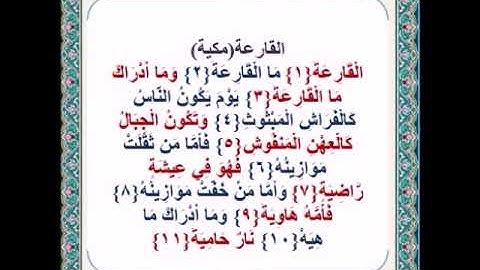 القارعة(مكية)
الْقَارِعَةُ{١} مَا الْقَارِعَةُ{٢} وَمَا أَدْرَاكَ
مَا الْقَارِعَةُ{٣} يَوْمَ يَكُونُ النَّاسُ
كَالْفَرَاشِ الْمَبْثُوثِ{٤} وَتَكُونُ الْجِبَالُ
كَالْعِهْنِ الْمَنفُوشِ{٥} فَأَمَّا مَن ثَقُلَتْ
مَوَازِينُهُ{٦} فَهُوَ فِي عِيشَةٍ
رَّاضِيَةٍ{٧} وَأَمَّا مَنْ خَفَّتْ مَوَازِينُهُ{٨}
فَأُمُّهُ هَاوِيَةٌ{٩} وَمَا أَدْرَاكَ مَا
هِيَهْ{١٠} نَارٌ حَامِيَةٌ{١١}